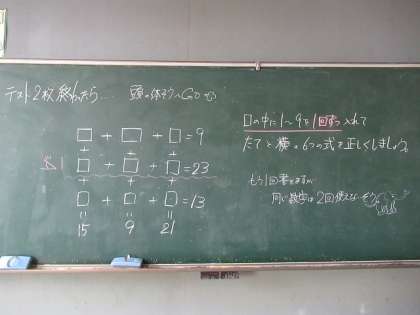 テスト2枚終わったら... 頭の体そうへGOする
□ + □ + □ = 9
+ + +
□ + □ + □ = 23
+ + +
□ + □ + □ = 13
= = =
15 9 21
□の中に1～9を1回ずつ入れて
たてと横の6つの式を正しくしましょう。
もう1回書きますが
同じ数字は2回使えないぞう